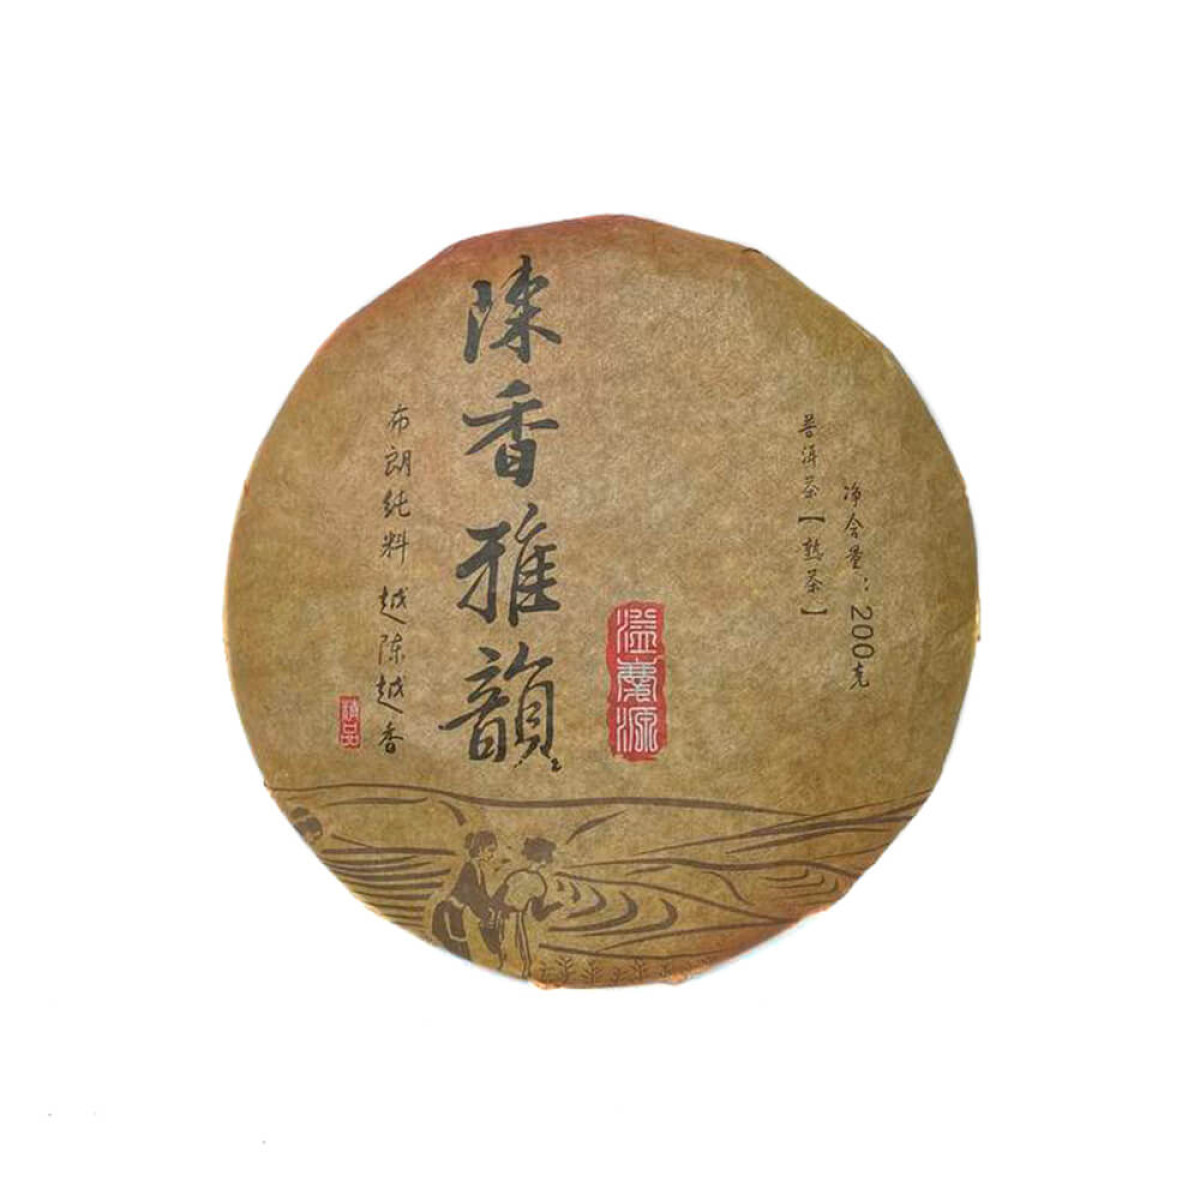 陳香雅韻
布朗纯料 越陈越香
精品
溢慶源
普洱茶【熟茶】
净含量：200克